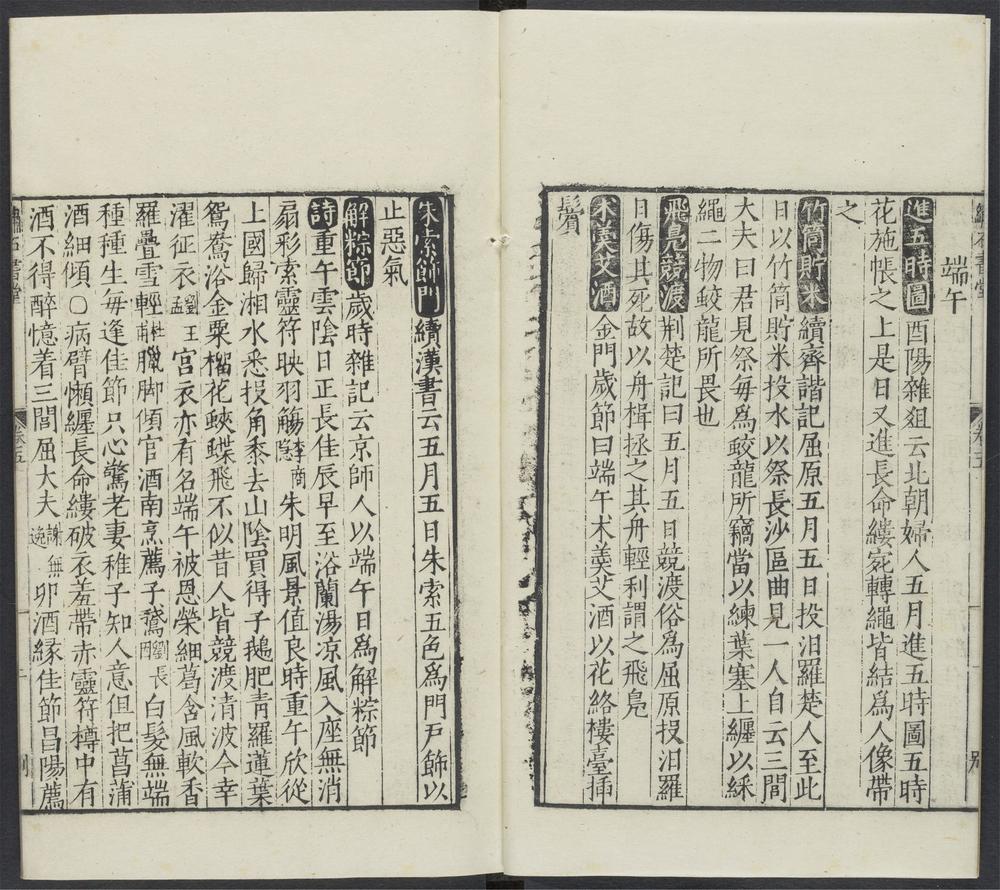 端午
進五時圖酉陽雜爼云北朝婦人五月進五時圖五時
花施帳之上是日又進長命縷宛轉繩皆結爲人像帶
之
竹筒貯米續齊諧記屈原五月五日投汨羅楚人至此
日以竹筒貯米投水以祭長沙區曲見一人自云三閭
大夫曰君見祭每爲蛟龍所竊當以練葉塞上纏以綵
繩二物蛟龍所畏也
飛鳧競渡荆楚記曰五月五日競渡俗爲屈原投汨羅
日傷其死故以舟楫拯之其舟輕利謂之飛鳧
术羹艾酒金門歲節曰端午术羹艾酒以花絡樓臺揷
鬢
朱索飾門續漢書云五月五日朱索五色爲門戸飾以
止惡氣
解粽節歲時雜記云京師人以端午日爲解粽節
詩重午雲陰日正長佳辰早至浴蘭湯凉風入座無消
扇彩索靈符映羽觴李商隱朱明風景值良時重午欣從
上國歸湘水悉投角黍去山陰買得子鵝肥靑羅蓮葉
鴛鴦浴金粟榴花蛺蝶飛不似昔人皆競渡清波今幸
濯征衣劉孟王宮衣亦有名端午被恩榮細葛含風軟香
羅疊雪輕杜甫臘脚傾官酒南烹薦子鵞劉長白髮無端
種種生每逢佳節只心驚老妻稚子知人意但把菖蒲
酒細傾〇病臂懶纏長命縷破衣羞帶赤靈符樽中有
酒不得醉憶着三閭屈大夫謝無逸卯酒縁佳節昌陽薦
卷五